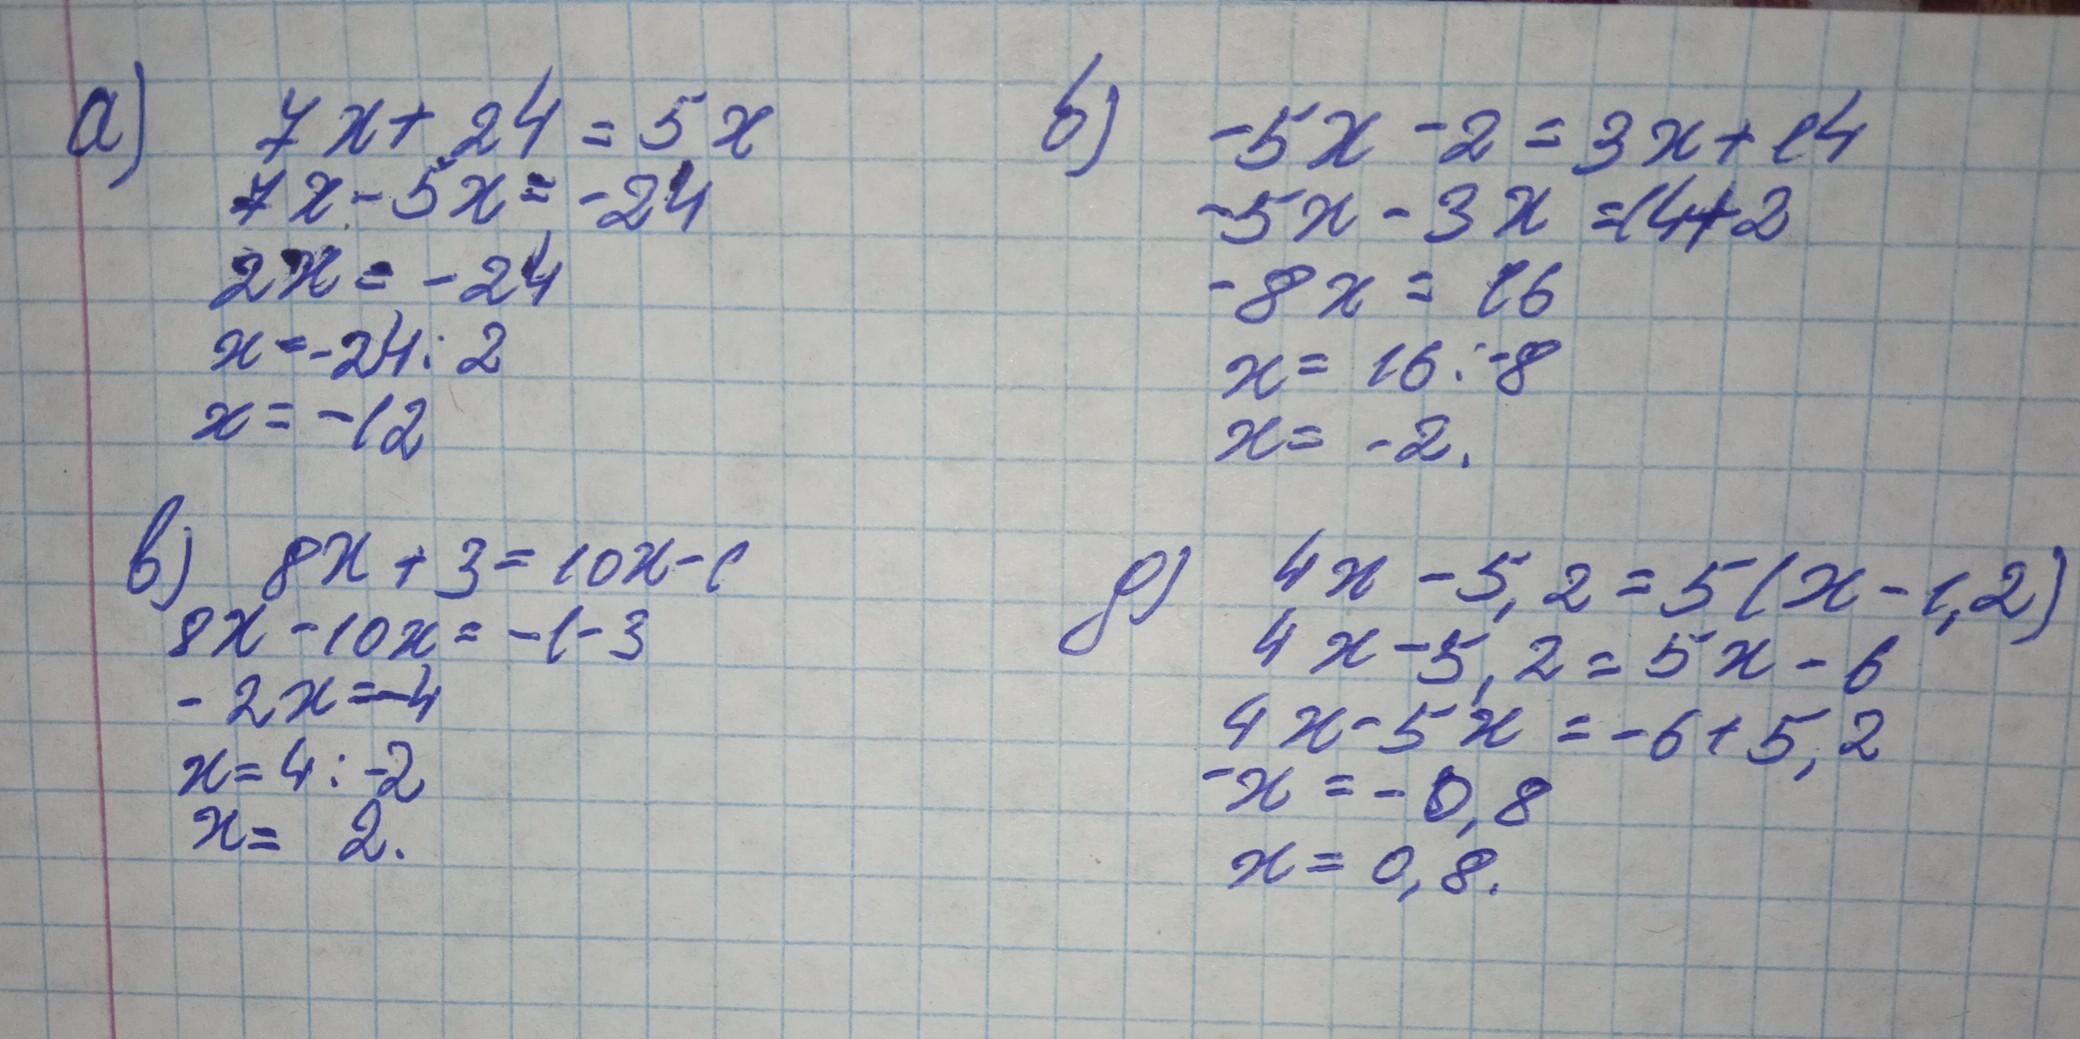 а) 7x + 24 = 5x
7x - 5x = -24
2x = -24
x = -24 : 2
x = -12
б) -5x - 2 = 3x + 14
-5x - 3x = 14 + 2
-8x = 16
x = 16 : -8
x = -2.
в) 8x + 3 = 10x - 1
8x - 10x = -1 - 3
-2x = -4
x = 4 : -2
x = 2.
д) 4x - 5,2 = 5(x - 1,2)
4x - 5,2 = 5x - 6
4x - 5x = -6 + 5,2
-x = -0,8
x = 0,8.